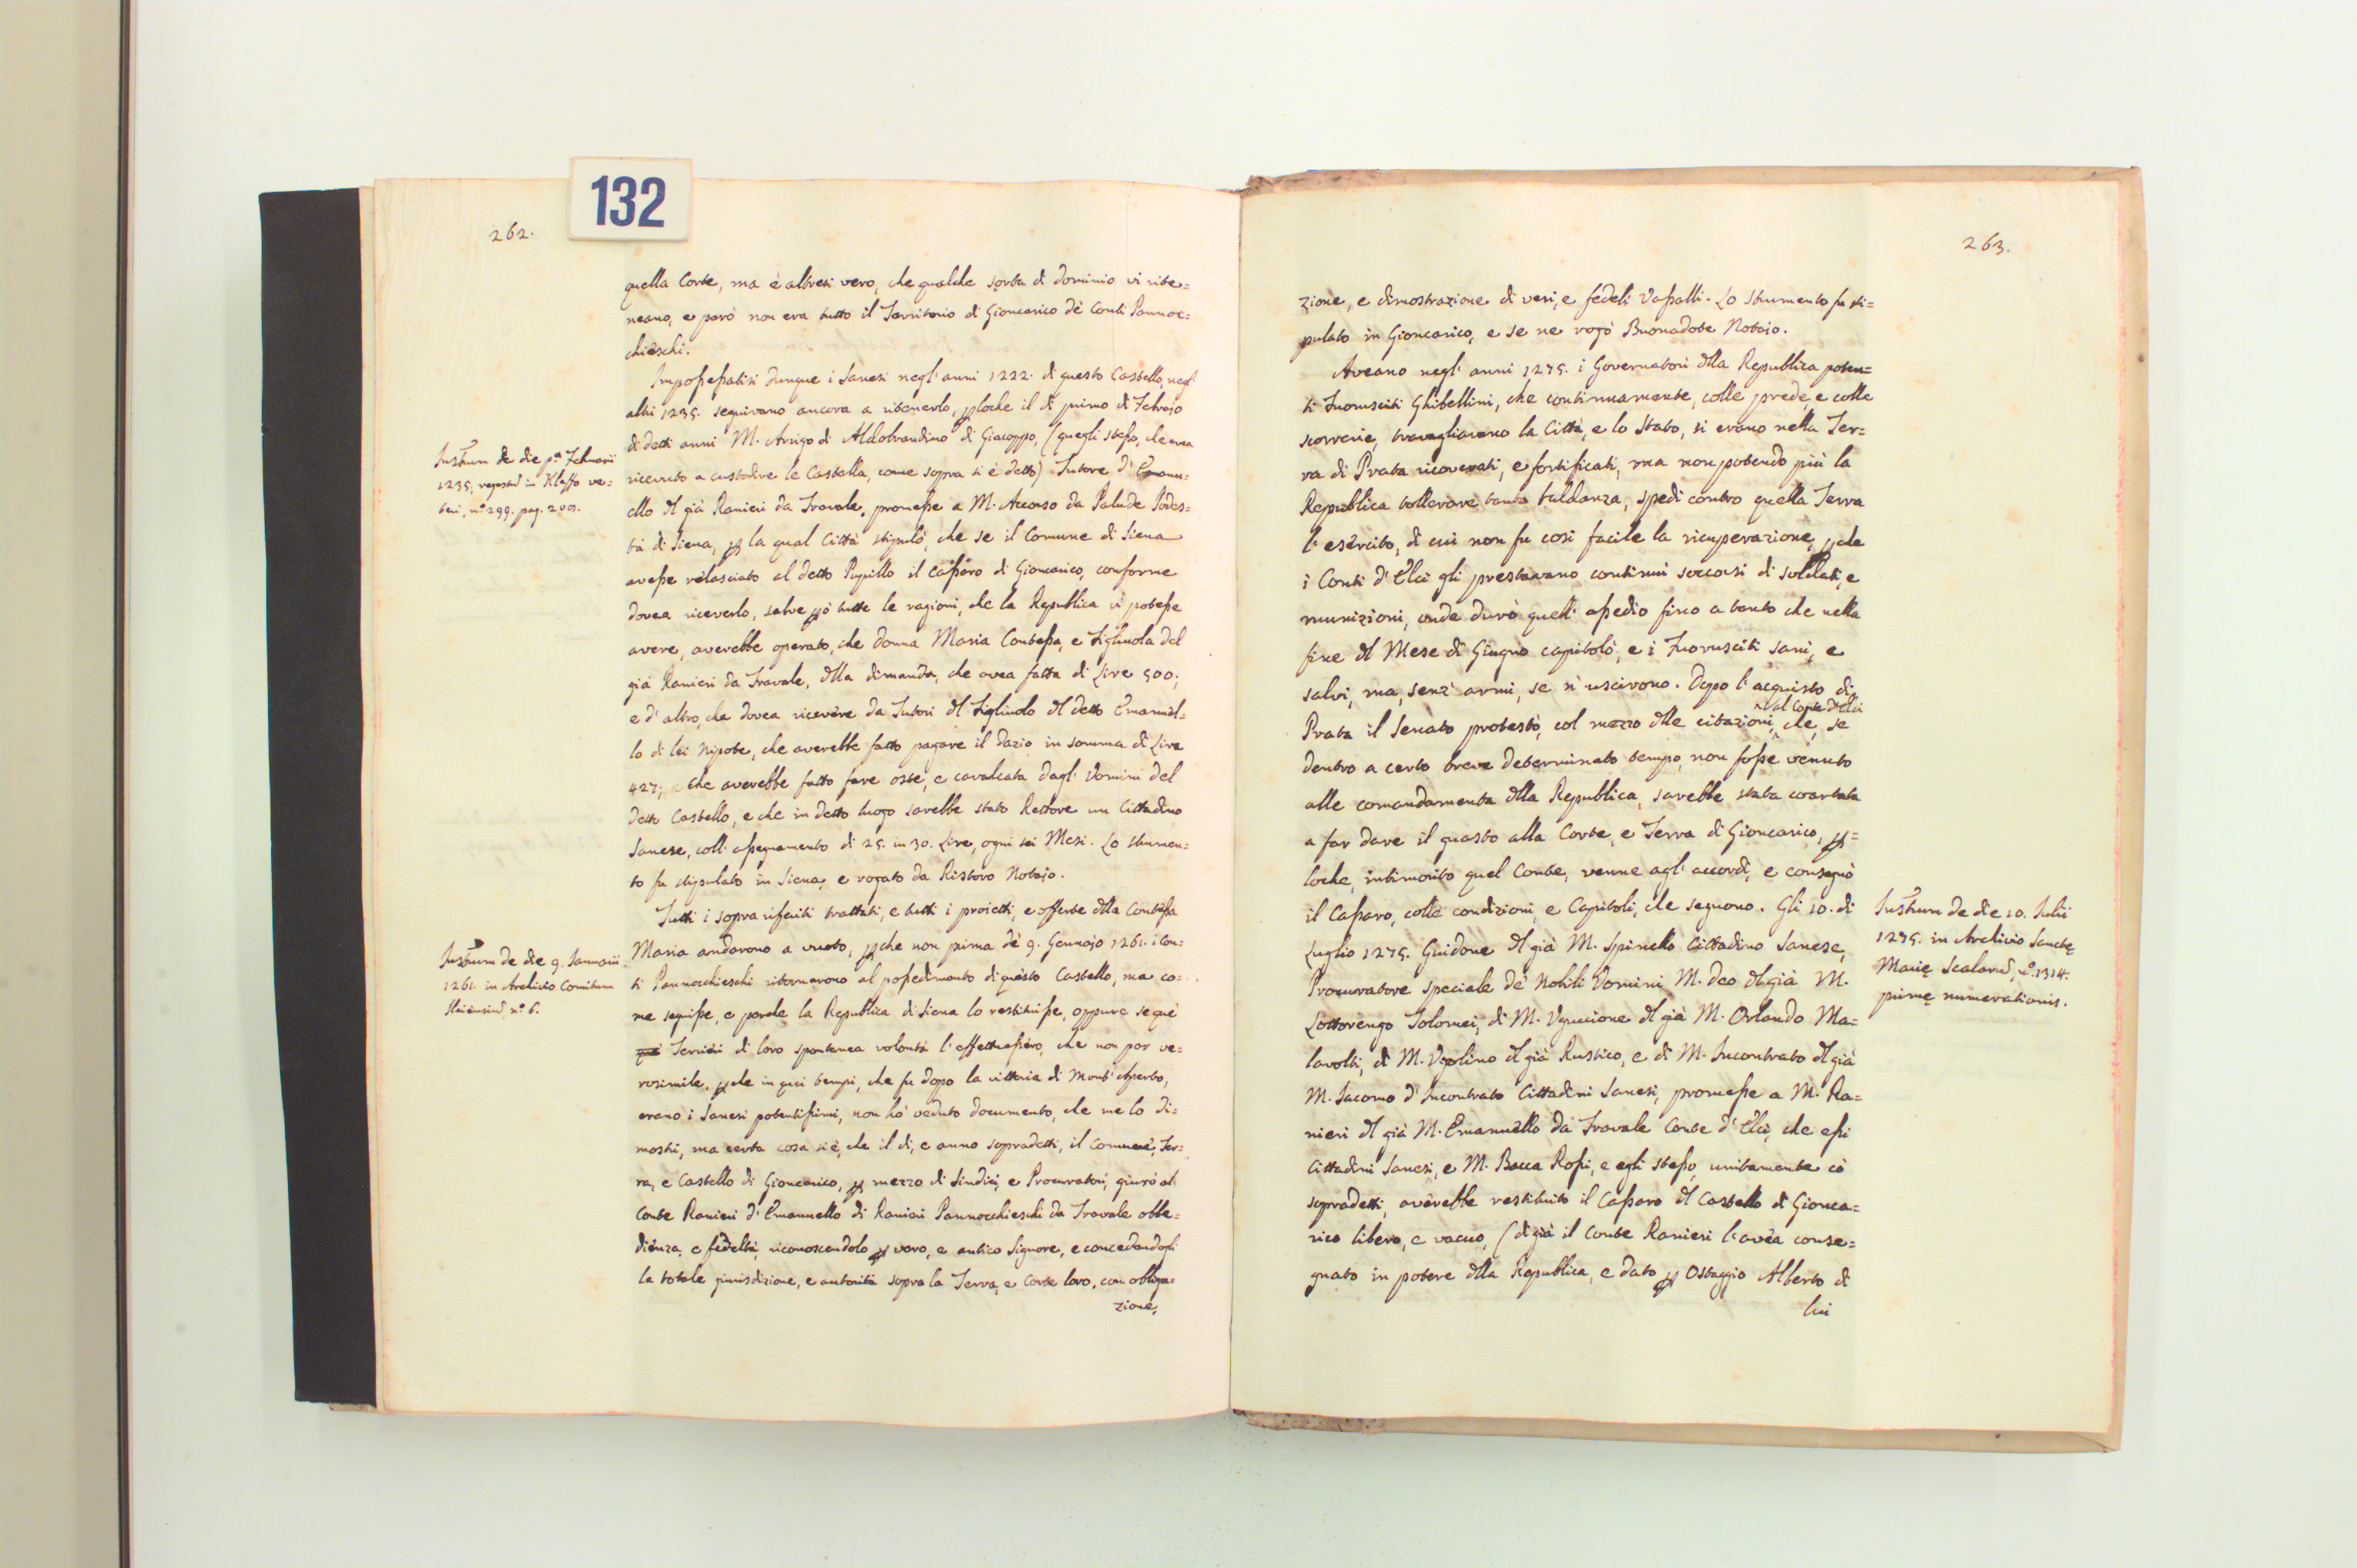 132
262.
quella Corte, ma è altresì vero, che qualche sorta di dominio vi rite=
neano, e però non era tutto il Territorio di Gioncarico de' Conti Pannoc=
chieschi.
Impossessatisi dunque i Sanesi negl' anni 1222. di questo Castello, negl'
altri 1235. seguivano ancora a ritenerlo, per loche il dì primo di Febrajo
di detti anni M. Arrigo di Aldobrandino di Giacoppo, (quegli stesso, che avea
ricevuto a custodire le Castella, come sopra si è detto) Tutore d' Emanu=
ello del già Ranieri da Travale, promesse a M. Accorso da Palude Podes=
tà di Siena, per la qual Città stipulò, che se il Comune di Siena
avesse rilasciato al detto Pupillo il Cassaro di Gioncarico, conforme
dovea riceverlo, salve però tutte le ragioni, che la Republica vi potesse
avere, averebbe operato, che donna Maria Contessa, e Figliuola del
già Ranieri da Travale, della dimanda, che avea fatta di Lire 500;
e d' altro, che dovea ricevere da Tutori del Figliuolo del detto Emanuel=
lo di lei Nipote, che averebbe fatto pagare il dazio in somma di Lire
427; che averebbe fatto fare oste, e cavalcata dagl' Uomini del
detto Castello, e che in detto luogo sarebbe stato Rettore un Cittadino
Sanese, coll' assegnamento di 25. in 30. Lire, ogni sei Mesi. Lo strumen=
to fu stipulato in Siena, e rogato da Ristoro Notajo.
Tutti i sopra riferiti trattati, e tutti i proietti, e offerte della Contessa
Maria andarono a vuoto, perche non prima de' 9. Gennajo 1261. i Con=
ti Pannocchieschi ritornarono al possedimento di questo Castello, ma co=
me seguisse, e perche la Republica di Siena lo restituisse, oppure se que'
Terrieri di loro spontanea volontà l' effettuassero, che non par ve=
rosimile, perche in quei tempi, che fu dopo la vittoria di Mont' Aperto,
erano i Sanesi potentissimi, non hò veduto documento, che me lo di=
mostri, ma certa cosa si è, che il dì, e anno sopradetti, il Comune, Ter=
ra, e Castello di Gioncarico, per mezzo di Sindici, e Procuratori, giurò al
Conte Ranieri d' Emanuello di Ranieri Pannocchieschi da Travale obbe=
dienza, e fedeltà, riconoscendolo per vero, e antico Signore, e concedendogli
la totale giurisdizione, e autorità sopra la Terra, e Corte loro, con obliga=
zione,
Instrum de die p.ª Februarii
1235, registr in Kleffo ve=
teri, n.º 299. pag. 200.
Instrum de die 9. Januarii
1261. in Archivio Comitum
Ilciensium, n.º 6.
263.
zione, e dimostrazione di veri, e fedeli Vassalli. Lo strumento fu sti=
pulato in Gioncarico, e se ne rogò Buonadote Notajo.
Aveano negl' anni 1275. i Governatori della Republica poten=
ti Fuorusciti Ghibellini, che continuamente, colle prede, e colle
scorrerie, travagliavano la Città, e lo Stato, si erano nella Ter=
ra di Prata ricoverati, e fortificati, ma non potendo più la
Republica tollerare tanta baldanza, spedì contro quella Terra
l' esercito, di cui non fu così facile la ricuperazione, perche
i Conti d' Elci gli prestavano continui soccorsi di soldati, e
munizioni, onde durò quell' assedio fino a tanto che nella
fine del Mese di Giugno capitolò, e i Fuorusciti sani, e
salvi, ma, senz' armi, se n' uscirono. Dopo l' acquisto di
al Conte d'Elci
Prata il Senato protestò, col mezzo delle citazioni, che, se
dentro a certo breve determinato tempo, non fosse venuto
alle comandamenta della Republica, sarebbe stata coartata
a far dare il guasto alla Corte, e Terra di Gioncarico, per=
loche, intimorito quel Conte, venne agl' accordi, e consegnò
il Cassaro, colle condizioni, e Capitoli, che seguono. Gli 10. di
Luglio 1275. Guidone del già M. Spinello Cittadino Sanese,
Procuratore speciale de' Nobili Uomini M. Deo del già M.
Lottorengo Tolomei, di M. Uguccione del già M. Orlando Ma=
lavolti, di M. Ugolino del già Rustico, e di M. Incontrato del già
M. Jacomo d' Incontrato Cittadini Sanesi, promesse a M. Ra=
nieri del già M. Emanuello da Travale Conte d' Elci, che essi
Cittadini Sanesi, e M. Bacca Rossi, e egli stesso, unitamente co'
sopradetti, averebbe restituito il Cassaro del Castello di Gionca=
rico libero, e vacuo, (di già il Conte Ranieri l' avea conse=
gnato in potere della Republica, e dato per Ostaggio Alberto di
lui
Instrum de die 10. Julii
1275. in Archivio Sanctę
Marię Scalarum, n.º 1314.
primę numerationis.